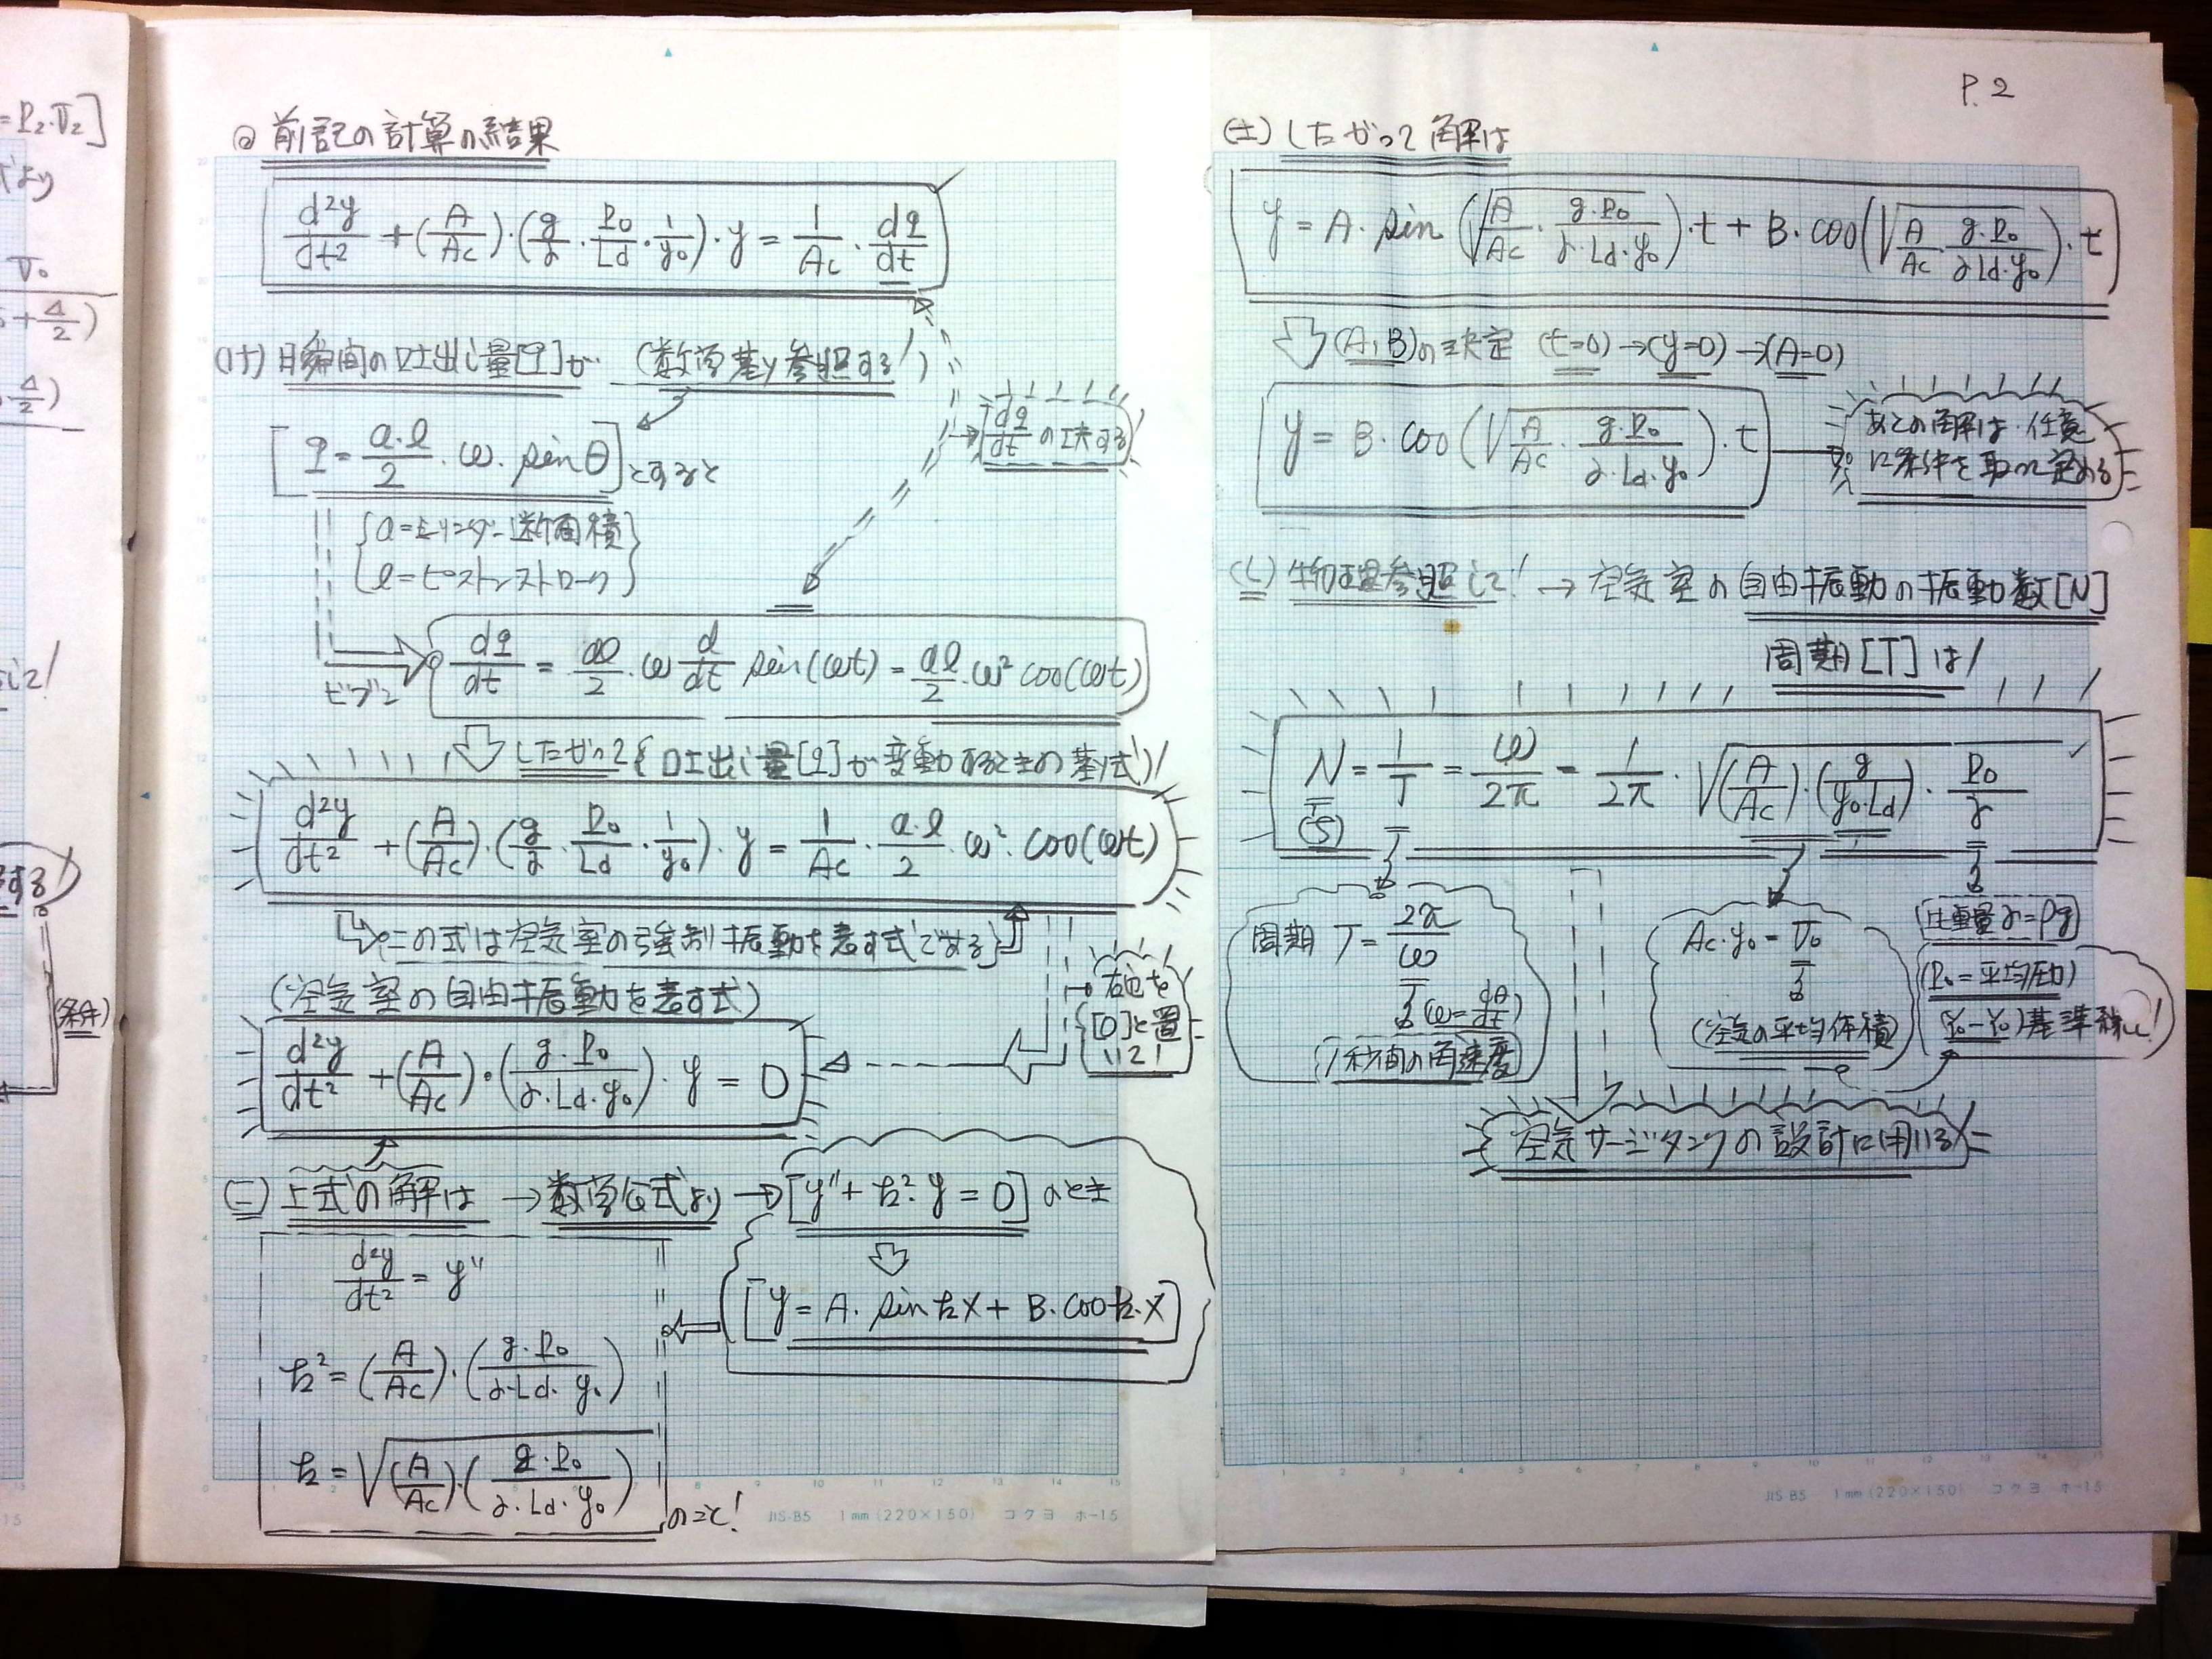 =P₂·V₂]
より
V₀
+Δ/2)
Δ/2)
して!
する)
(条件)
◎ 前記の計算の結果
d²y/dt² + (A/Ac)·(g/γ·P₀/Ld·1/y₀)·y = 1/Ac·dq/dt
(け) 瞬間の吐出し量[q]が (数学基y参照する!)
[q = a·l/2·ω·sinθ]とすると
dq/dt の工夫する!
{a=シリンダー断面積}
{l=ピストンストローク}
dq/dt = al/2·ω d/dt sin(ωt) = al/2·ω² cos(ωt)
したがって{吐出し量[q]が変動するときの基y式}!
d²y/dt² + (A/Ac)·(g/γ·P₀/Ld·1/y₀)·y = 1/Ac·a·l/2·ω²·cos(ωt)
この式は空気室の強制振動を表す式である}
(空気室の自由振動を表す式)
右辺を
[0]と置
いて!
d²y/dt² + (A/Ac)·(g·P₀/γ·Ld·y₀)·y = 0
(二) 上式の解は → 数学公式より → [y″+k²·y = 0] のとき
d²y/dt² = y″
[y = A·sin kx + B·cos k·x]
k² = (A/Ac)·(g·P₀/γ·Ld·y₀)
k = √(A/Ac)·(g·P₀/γ·Ld·y₀)
のこと!
JIS-B5 1mm (220×150) コクヨ ホ-15
P. 2
したがって解は
y = A·sin(√A/Ac·g·P₀/γ·Ld·y₀)·t + B·cos(√A/Ac·g·P₀/γ·Ld·y₀)·t
(A,B)の決定 (t=0)→(y=0)→(A=0)
y = B·cos(√A/Ac·g·P₀/γ·Ld·y₀)·t
あとの解は·任意
に条件を取って定める
(し) 物理参照して! → 空気室の自由振動の振動数[N]
周期[T]は!
N = 1/T = ω/2π = 1/2π·√(A/Ac)·(g/y₀·Ld)·P₀/γ
(S)
周期 T = 2π/ω
(ω=dθ/dt)
1秒間の角速度
Ac·y₀ = V₀
(空気の平均体積)
比重量γ=ρg
(P₀=平均圧力)
(Y₀-Y₀)基準線に!
空気サージタンクの設計に用いる
JIS-B5 1mm (220×150) コクヨ ホ-15